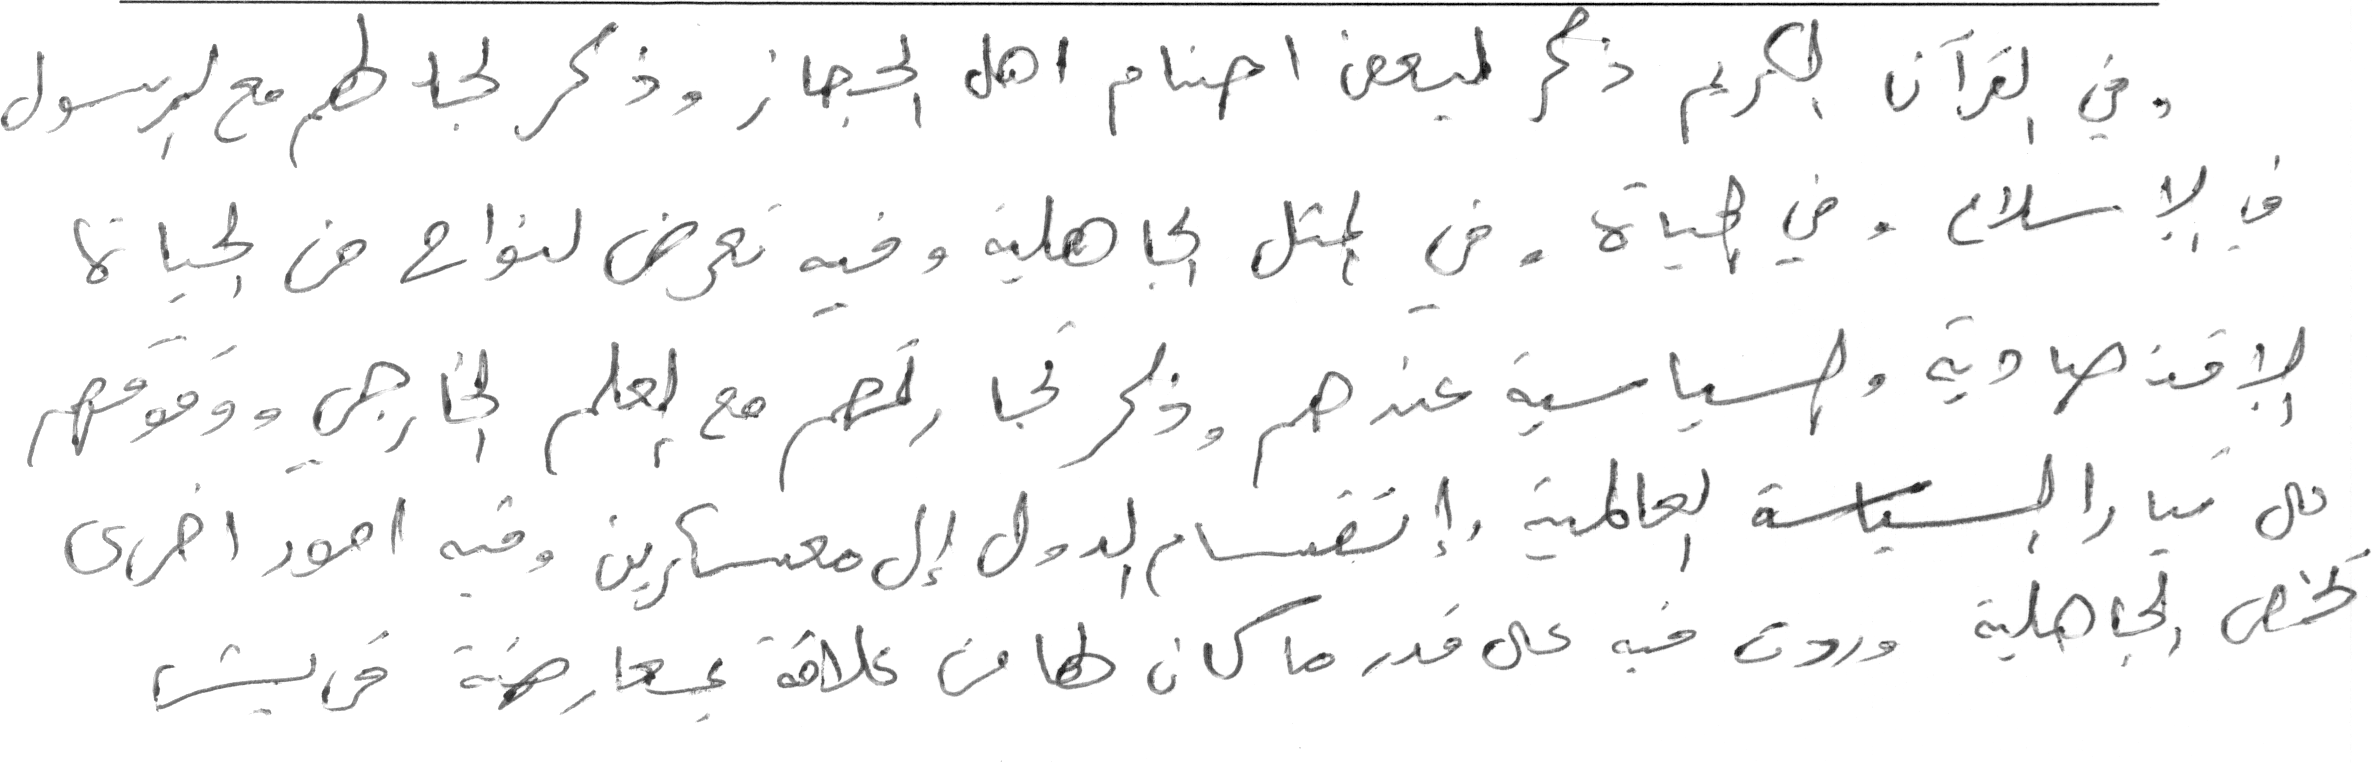 وفي القرآن الكريم ذكر لبعض اصنام اهل الحجاز وذكر لجدلهم مع الرسول
في الإسلام وفي الحياة وفي المثل الجاهلية وفيه تعرض لنواح من الحياة
الإقتصادية والسياسية عندهم وذكر تجارتهم مع العالم الخارجي ووقوفهم
على تيارا السياسة العالمية وإنقسام الدول إلى معسكرين وفيه امور اخرى
تخص الجاهلية وردت فيه على قدر ما كان لها من علاقة بمعارضة قريش